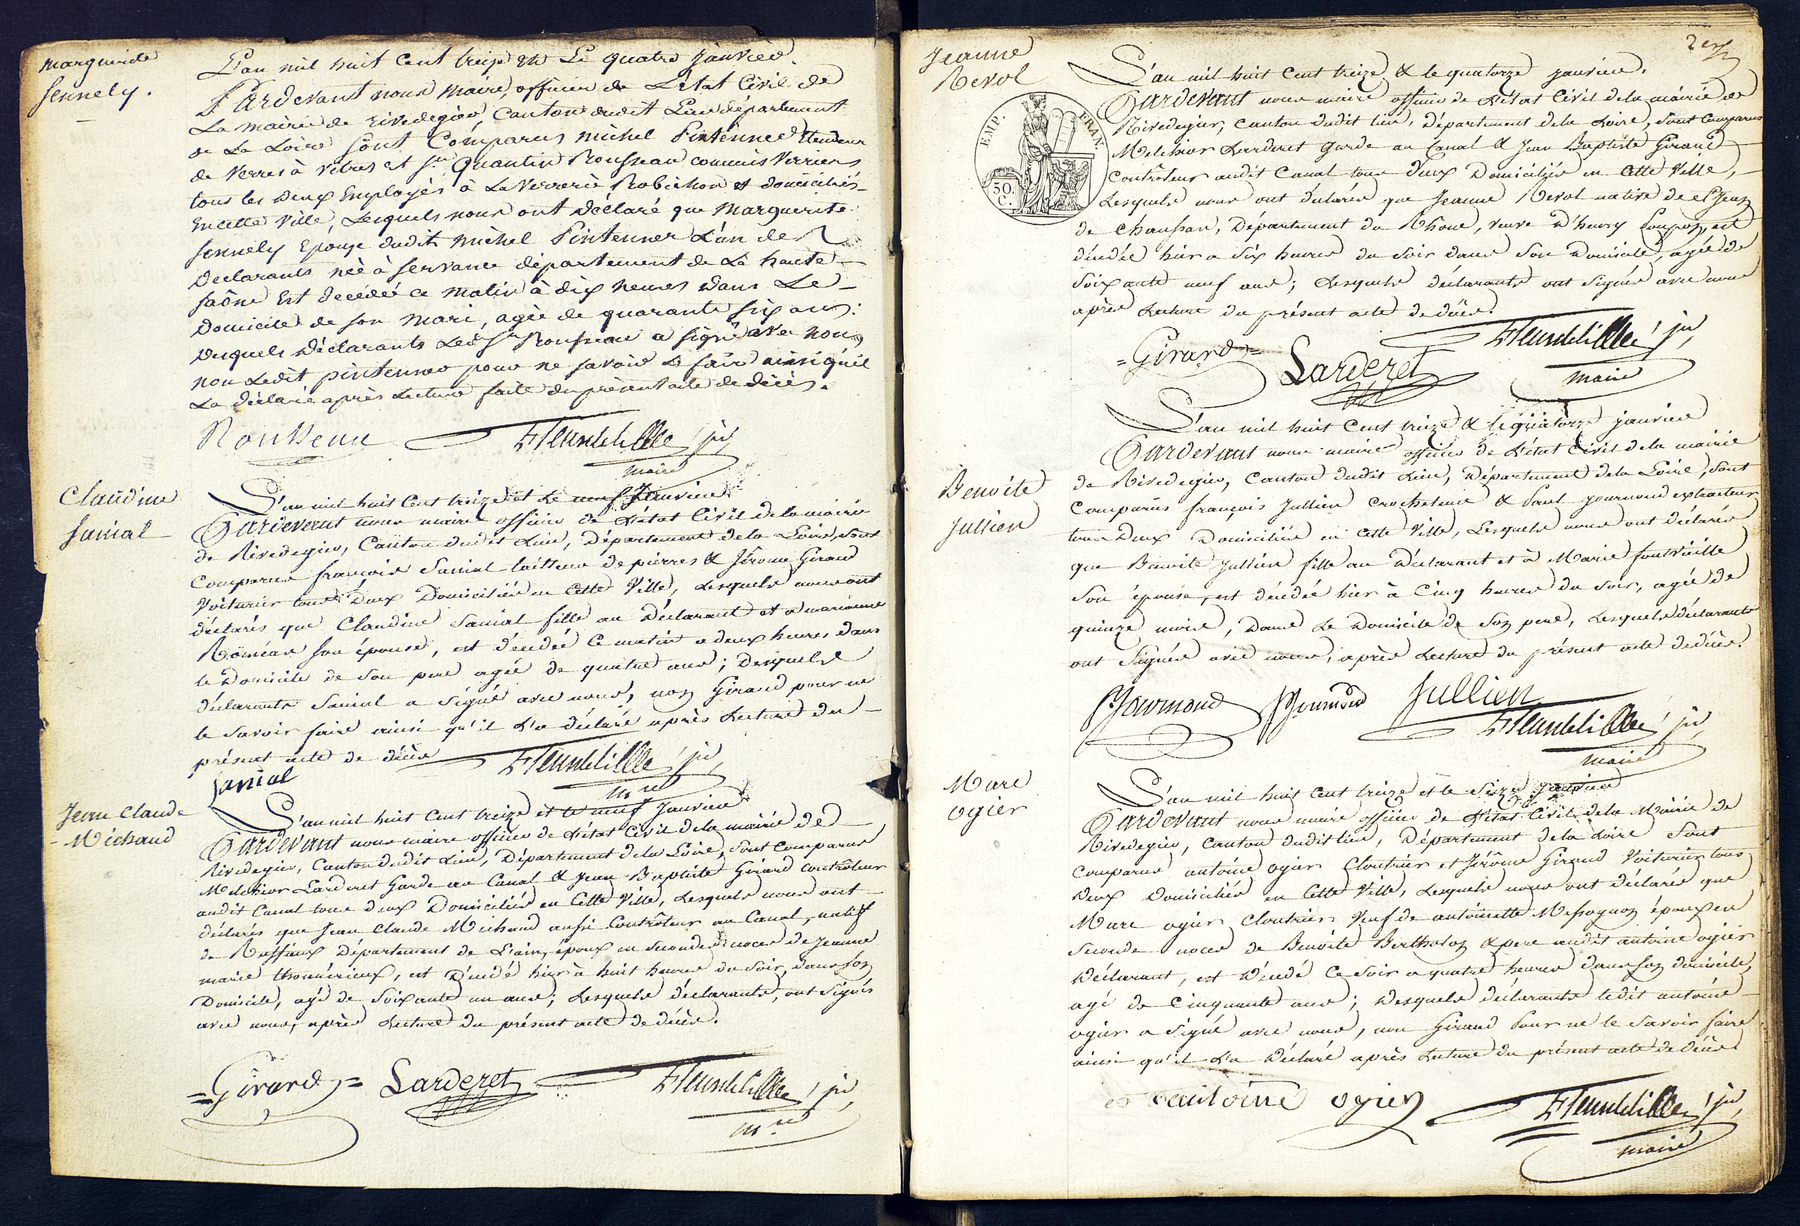 marguerite
sennely.
L'an mil huit Cent treize et Le quatre Janvier.
Pardevant nous maire, officier de L'état Civil de
La mairie de rivedegier, Canton dudit Lieu département
de La Loire sont Comparus michel Pintenner tendeur
de verres à vitres et sr. Quantin Rousseau commis verrier
tous les deux Employés à La verrerie Robichon et domiciliés
en cette ville, Lesquels nous ont déclaré que marguerite
sennely Epouse dudit michel Pintenner L'un des
déclarants née à servance département de La haute
saône Est décédée ce matin à dix heures dans Le
domicile de son mari, agée de quarante six ans:
desquels déclarants Led. sr. Rousseau a signé avec nous
non Ledit pintenner pour ne savoir Le faire ainsi qu'il
La déclaré après Lecture faite du présent acte de décès.
Rousseau
maire
Claudine
sanial
L'an mil huit Cent treize et Le neuf Janvier
Pardevant nous maire officier de L'état Civil de la mairie
de Rivedegier, Canton dudit Lieu, Département de la Loire, sont
Comparus françois Sanial tailleur de pierres & Jérome Giraud
Voiturier tous deux Domiciliés en Cette Ville, Lesquels nous ont
déclarés que Claudine Sanial fille au Déclarant et a marianne
son épouse, est décédée Ce matin a deux heures dans
le Domicile de son pere agée de quatre ans; Desquels
déclarants Sanial a signé avec nous, non Giraud pour ne
le savoir faire ainsi qu'il L'a déclaré après Lecture du
présent acte de décès
sanial
mre
Jean Claude
Michaud
L'an mil huit Cent treize et le neuf Janvier
Pardevant nous maire officier de L'état Civil de la mairie de
Rivedegier, Canton dudit Lieu, Département de la Loire, sont Comparus
Melchior Larderet Garde au Canal & Jean Baptiste Girard Contrôleur
audit Canal tous deux Domiciliés en Cette Ville, Lesquels nous ont
déclarés que Jean Claude Michaud aussi Contrôleur au Canal, natif
de Ruffieux Département de L'ain, époux en secondes noces de Jeanne
marie thonnérieux, est Décédé hier à huit heures du soir, dans son
Domicile, agé de soixante un ans; Lesquels déclarants, ont signés
avec nous, après Lecture du présent acte de décès.
=Girard= Larderet
mre
2
Jeanne
Revol
EMP. FRAN.
50.
C.
L'an mil huit Cent treize & le quatorze janvier.
Pardevant nous maire officier de L'état Civil de la mairie de
Rivedegier, Canton dudit lieu, département de la Loire, sont Comparus
Melchior Larderet garde au Canal & Jean Baptiste Girard
Contrôleur audit Canal tous deux Domiciliés en Cette Ville,
Lesquels nous ont déclarés que Jeanne Revol native de St. Jean
de Chaussan, Département du Rhône, veuve D'henry est
décédée hier a six heures du soir dans son Domicile, agée de
soixante neuf ans; Lesquels déclarants ont signés avec nous
après Lecture du présent acte de décès.
=Girard= Larderet
maire
Benoite
Jullien
L'an mil huit Cent treize & le quatorze janvier
Pardevant nous maire officier de L'état Civil de la mairie
de Rivedegier, Canton dudit Lieu, Département de la Loire, sont
Comparus françois Jullien crocheteur & Paul Journoud extracteur
tous Deux Domiciliés en Cette Ville, Lesquels nous ont déclarés
que Benoite Jullien fille au Déclarant et à Marie fontvieille
son épouse, est décédée hier à Cinq heures du soir, agée de
quinze mois, Dans Le Domicile de son pere, Lesquels déclarants
ont signés avec nous, après Lecture du présent acte de décès.
Journoud Jullien
maire
Marc
Ogier
L'an mil huit Cent treize et le seize janvier
Pardevant nous maire officier de L'état Civil de la Mairie de
Rivedegier, Canton dudit lieu, Département de la Loire sont
Comparus antoine ogier Cloutrier et Jérôme Giraud Voiturier tous
Deux Domiciliés en Cette Ville, Lesquels nous ont déclarés que
Marc ogier Cloutrier Veuf de antoinette époux en
seconde noces de Benoite Bertholon & pere audit antoine ogier
déclarant, est décédé Ce soir a quatre heures dans son domicile,
agé de Cinquante ans; Desquels déclarants ledit antoine
ogier a signé avec nous, non Giraud pour ne le savoir faire
ainsi qu'il L'a déclaré après Lecture du présent acte de décès.
antoine ogier
maire